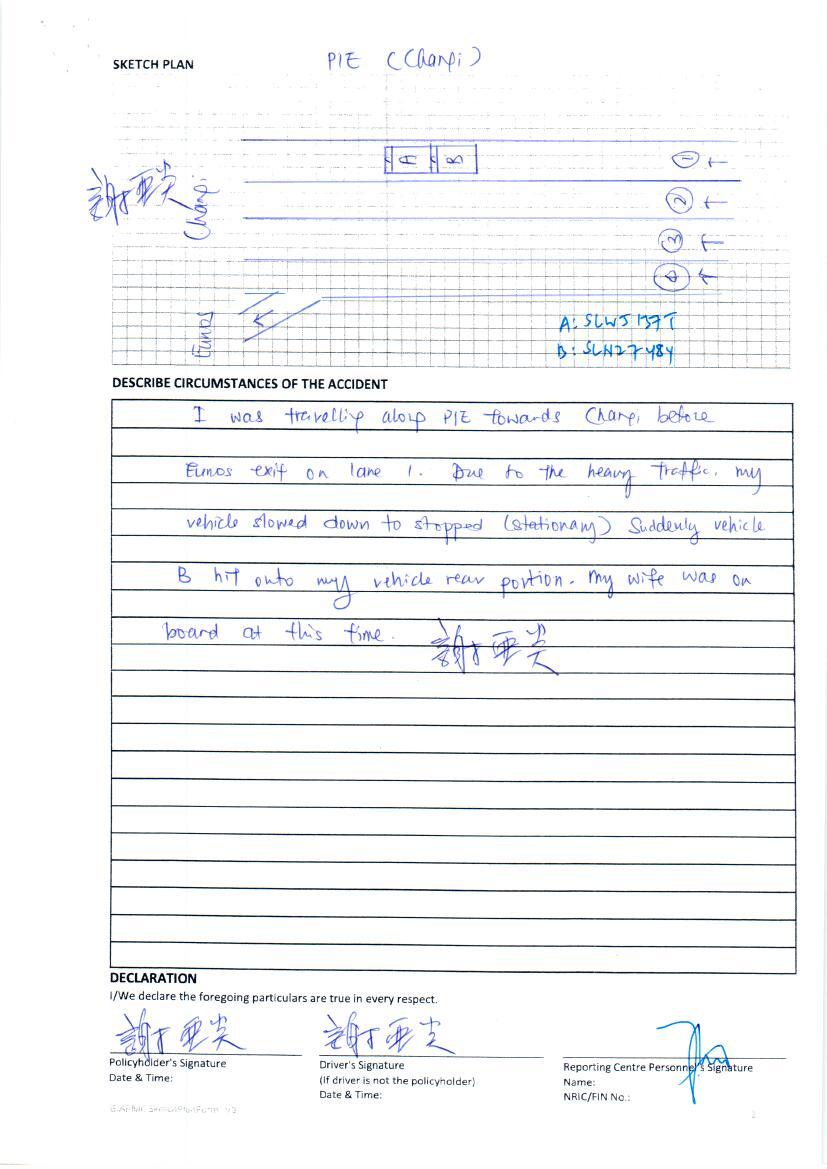 SKETCH PLAN
PIE (Changi)
A
B
1
2
3
4
Changi
Eunos
A: SLW5137T
B: SLN2748Y
DESCRIBE CIRCUMSTANCES OF THE ACCIDENT
I was travelling along PIE towards Changi before
Eunos exit on lane 1. Due to the heavy traffic, my
vehicle slowed down to stopped (stationary) Suddenly vehicle
B hit onto my vehicle rear portion. My wife was on
board at this time.
DECLARATION
I/We declare the foregoing particulars are true in every respect.
Policyholder's Signature
Date & Time:
Driver's Signature
(If driver is not the policyholder)
Date & Time:
Reporting Centre Personnel's Signature
Name:
NRIC/FIN No.: